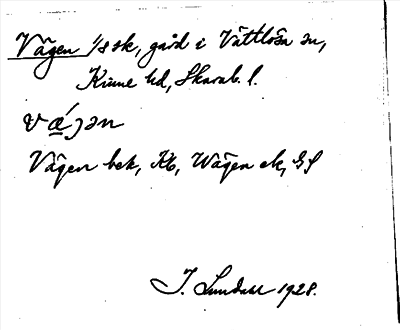 Vägen 1/8 sk, gård i Vättlösa sn,
Kinne hd, Skarab. l.
vǽjən
Vägen bek, Kb, Wägen ek, GS
J. Lundahl 1928.